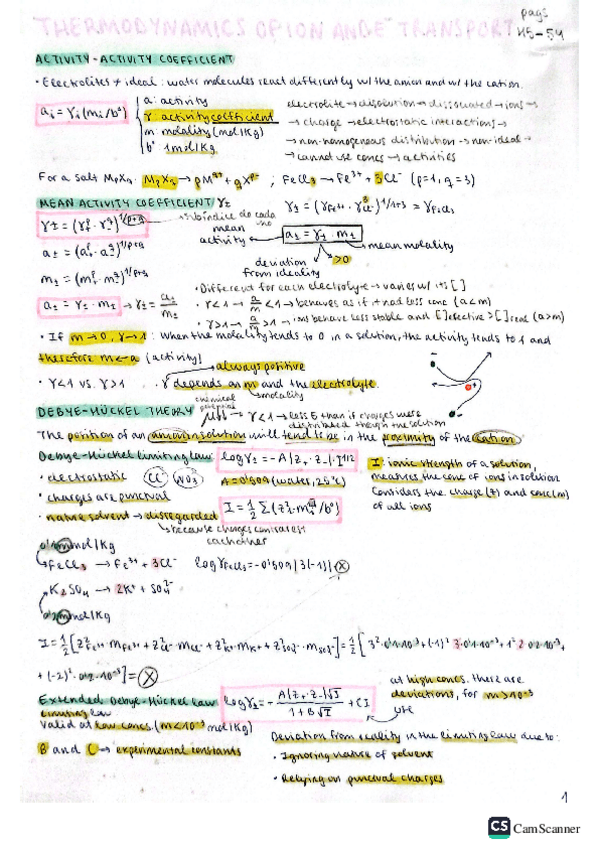 THERMODYNAMICS OF ION AND e⁻ TRANSPORT
pags
45-54
ACTIVITY - ACTIVITY COEFFICIENT
• Electrolites ≠ ideal: water molecules react differently w/ the anion and w/ the cation.
aᵢ = γᵢ(mᵢ/b°)
a: activity
γ: activity coefficient
m: molality (mol/Kg)
b° 1mol/Kg
electrolite → dissolution → dissociated → ions →
→ charge → electrostatic interactions →
→ non-homogeneous distribution → non-ideal →
→ cannot use concs → activities
For a salt MpXq. MpXq → pM^q+ + qX^p- ; FeCl₃ → Fe³⁺ + 3Cl⁻ (p=1, q=3)
MEAN ACTIVITY COEFFICIENT γ±
γ± = (γ₊^p · γ₋^q)^1/p+q
→ subíndice de cada uno
γ± = (γFe³⁺ · γ³Cl⁻)^1/1+3 = γFeCl₃
mean activity
a± = γ± · m±
→ mean molality
a± = (a₊^p · a₋^q)^1/p+q
deviation from ideality
>0
m± = (m₊^p · m₋^q)^1/p+q
• Different for each electrolyte → varies w/ its [ ]
a± = γ± · m± → γ± = a±/m±
• γ<1 → a/m <1 → behaves as if it had less conc (a<m)
• γ>1 → a/m >1 → ions behave less stable and [ ]efective > [ ]real (a>m)
• If m→0, γ→1: when the molality tends to 0 in a solution, the activity tends to 1 and
therefore m ← a (activity)
→ always positive
• γ<1 vs. γ>1 . γ depends on m and the electrolyte.
molality
DEBYE-HÜCKEL THEORY
chemical potential
μ → γ<1 → less E than if charges were
distributed though the solution
The position of an anion in solution will tend to be in the proximity of the cation
Debye-Hückel limiting law:
log γ± = -A|z₊·z₋|·I^1/2
I: ionic strength of a solution,
measures the conc of ions in solution
Considers the charge (z) and conc (m)
of all ions
• electrostatic
Cl⁻
NO₃⁻
A=0'509 (water, 25°C)
• charges are punctual
• nature solvent → disregarded
I = 1/2 Σ(zᵢ²·mᵢ/b°)
→ because charges contrarest each other
mmol/Kg
FeCl₃ → Fe³⁺ + 3Cl⁻
log γFeCl₃ = -0'509|3(-1)|√X
K₂SO₄ → 2K⁺ + SO₄²⁻
mmol/Kg
I = 1/2 [z²Fe³⁺·mFe³⁺ + z²Cl⁻·mCl⁻ + z²K⁺·mK⁺ + z²SO₄²⁻·mSO₄²⁻] = 1/2 [3²·0'1·10⁻³ + (-1)²·3·0'1·10⁻³ + 1²·2·0'2·10⁻³ +
+ (-2)²·0'2·10⁻³] = X
Extended Debye-Hückel Law
log γ± = - A|z₊·z₋|√I / 1+B√I + CI
at high concs. there are
deviations, for m>10⁻³
use
Limiting law
Valid at low concs. (m<10⁻³ mol/Kg)
B and C → experimental constants
Deviation from reality in the limiting law due to:
• Ignoring nature of solvent
• Relying on punctual charges
1
CS CamScanner